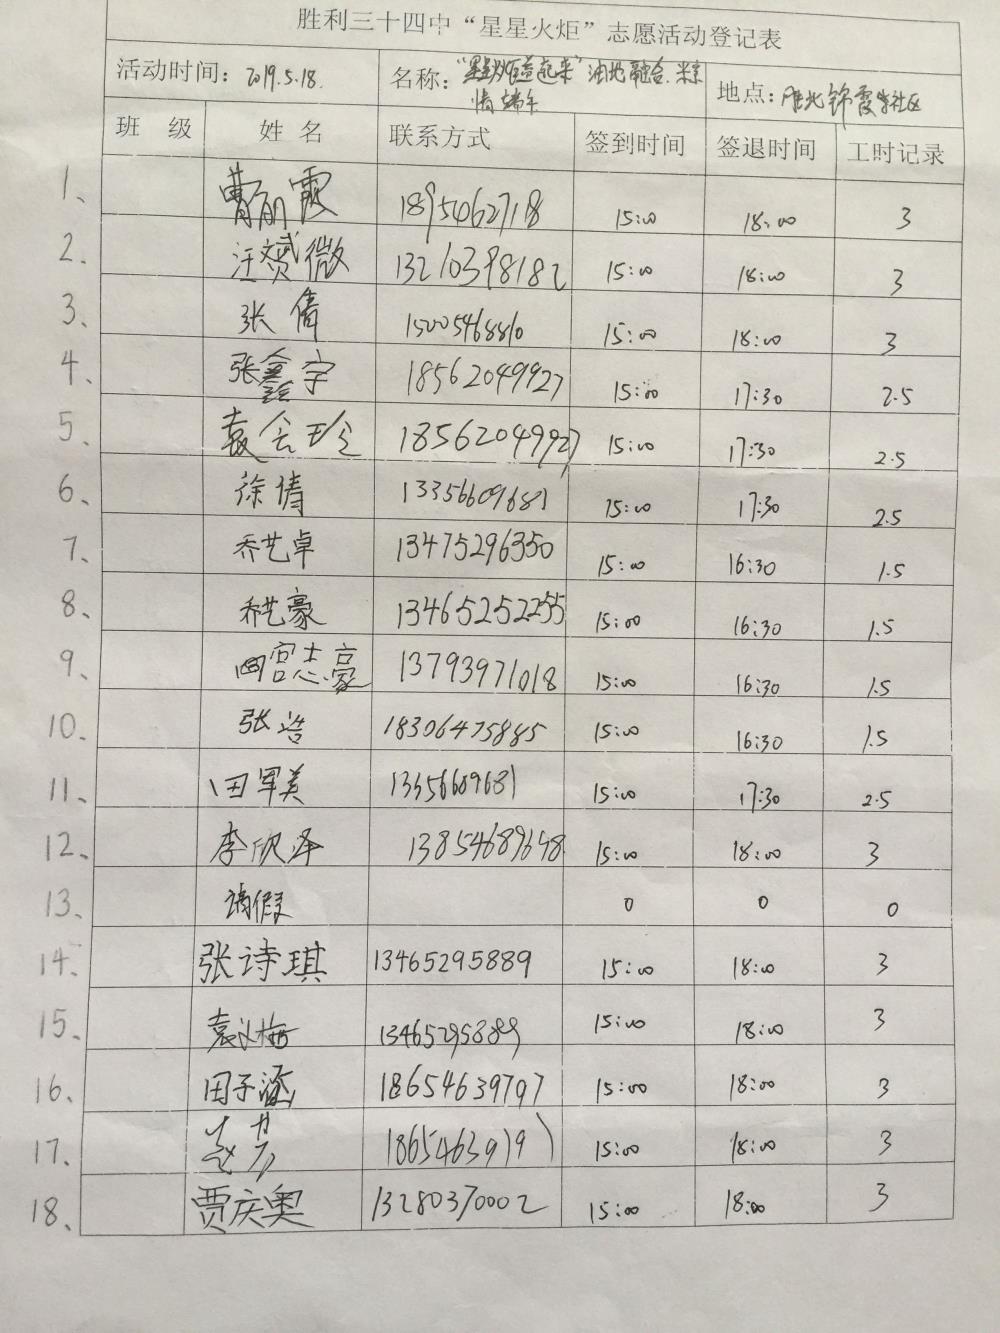 胜利三十四中“星星火炬”志愿活动登记表
活动时间：2019.5.18. 名称：“星星火炬益起来”油地融合.粽 地点：胜北锦霞社区
情端午
班 级 姓 名 联系方式 签到时间 签退时间 工时记录
1、 曹丽霞 18954062718 15:00 18:00 3
2、 汪赟微 13210398182 15:00 18:00 3
3、 张倩 15005468860 15:00 18:00 3
4、 张鑫宇 18562049927 15:00 17:30 2.5
5、 袁会玲 18562049927 15:00 17:30 2.5
6、 徐倩 13356609681 15:00 17:30 2.5
7、 乔艺卓 13475296350 15:00 16:30 1.5
8、 乔艺豪 13465252255 15:00 16:30 1.5
9、 宫志豪 13793971018 15:00 16:30 1.5
10、 张浩 18306475885 15:00 16:30 1.5
11、 田军美 13356609681 15:00 17:30 2.5
12、 李欣泽 13854689648 15:00 18:00 3
13、 请假 0 0 0
14、 张诗琪 13465295889 15:00 18:00 3
15、 袁义梅 13465295889 15:00 18:00 3
16、 田子涵 18654639797 15:00 18:00 3
17、 赵芳 15:00 18:00 3
18、 贾庆奥 13280370002 15:00 18:00 3